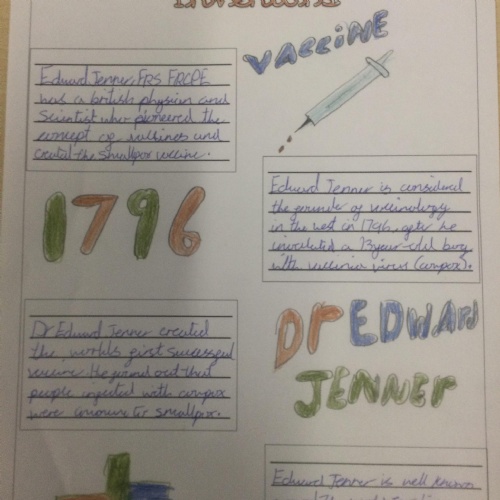 Inventions
VACCINE
Edward Jenner, FRS FRCPE
was a british physician and
scientist who pioneered the
concept of vaccines and
created the smallpox vaccine.
1796
Edward Jenner is considered
the founder of vaccinology
in the west in 1796, after he
inoculated a 13 year-old boy
with vaccinia virus (cowpox).
Dr Edward Jenner created
the worlds first successful
vaccine. He found out that
people injected with cowpox
were immune to smallpox.
Dr EDWAN
JENNER
Edward Jenner is well known